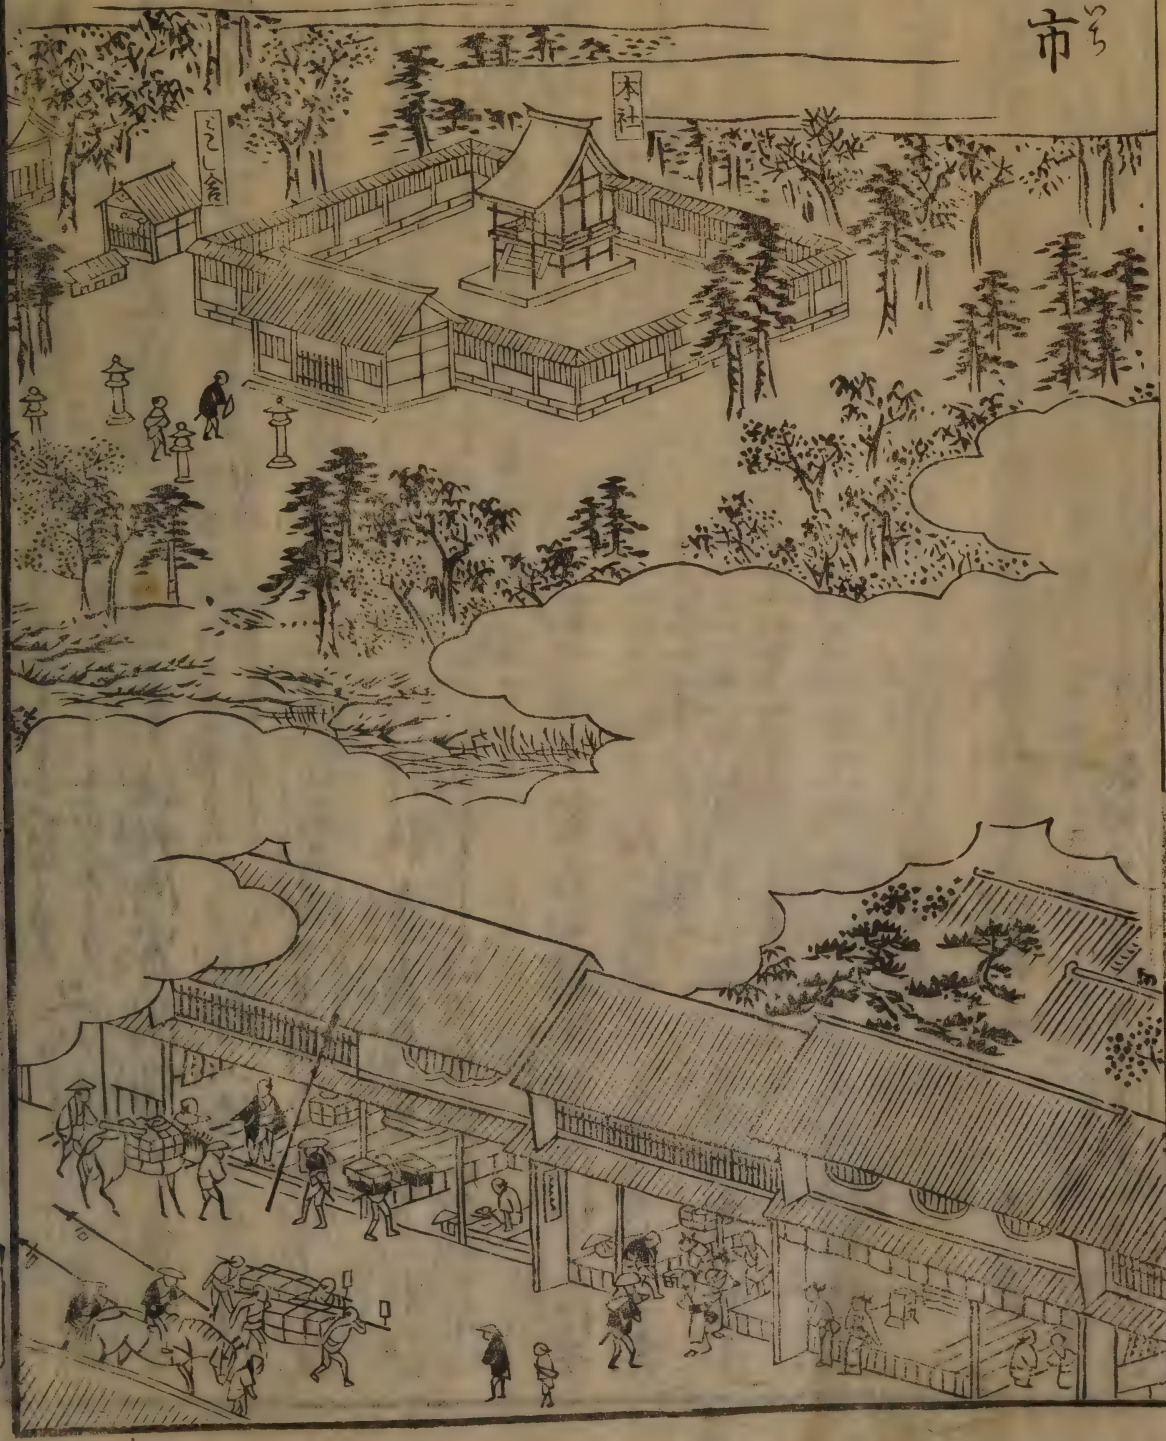 市
いち
本社
みこし舎